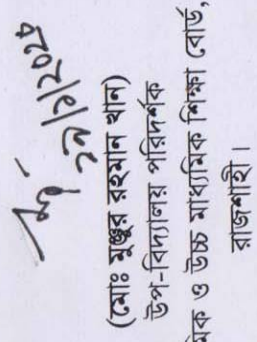 ২৯/১/২০২৪
(মোঃ মুঞ্জুর রহমান খান)
উপ-বিদ্যালয় পরিদর্শক
মিক ও উচ্চ মাধ্যমিক শিক্ষা বোর্ড,
রাজশাহী।